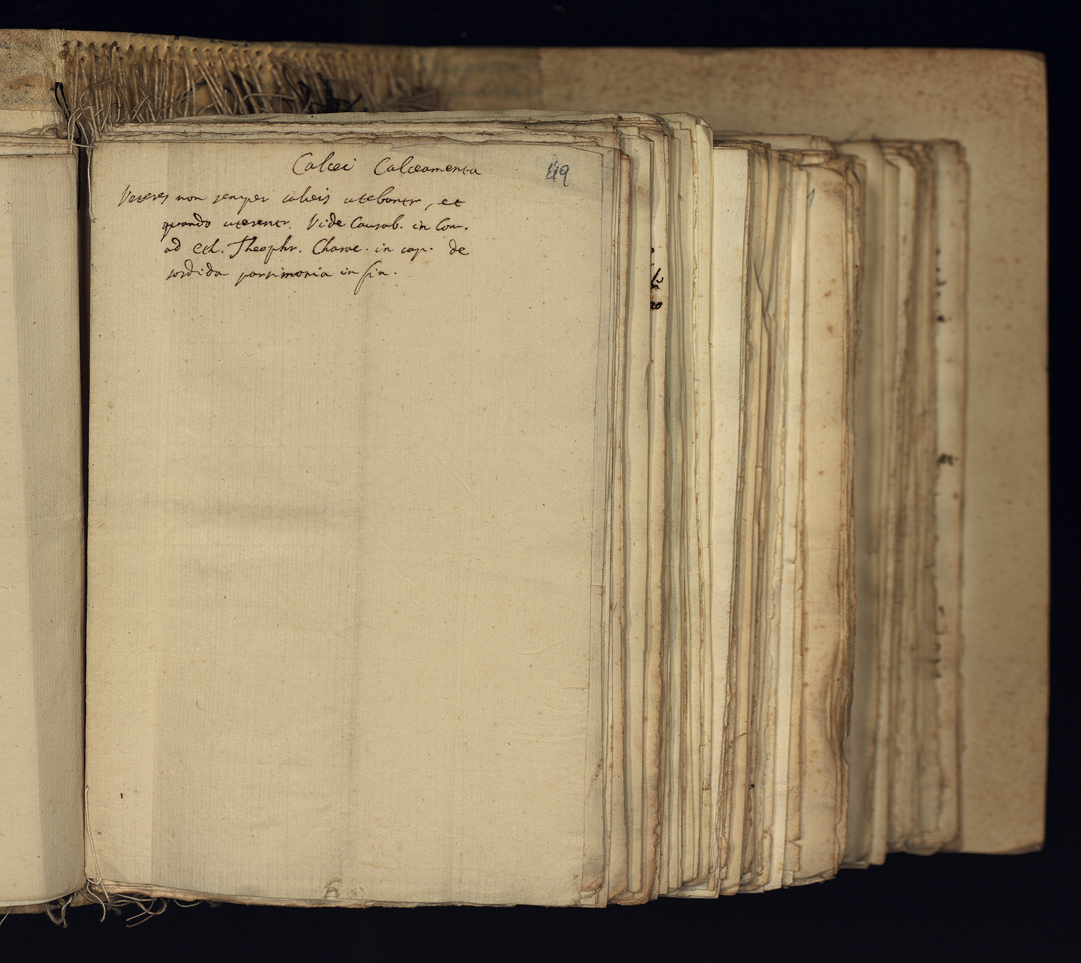 Calcei Calceamenta
49
Veteres non semper calceis utebantr, et
quando uterentr. Vide Causab. in Com.
ad Eth. Theophr. Charac. in cap. de
sordida parsimonia in fin.